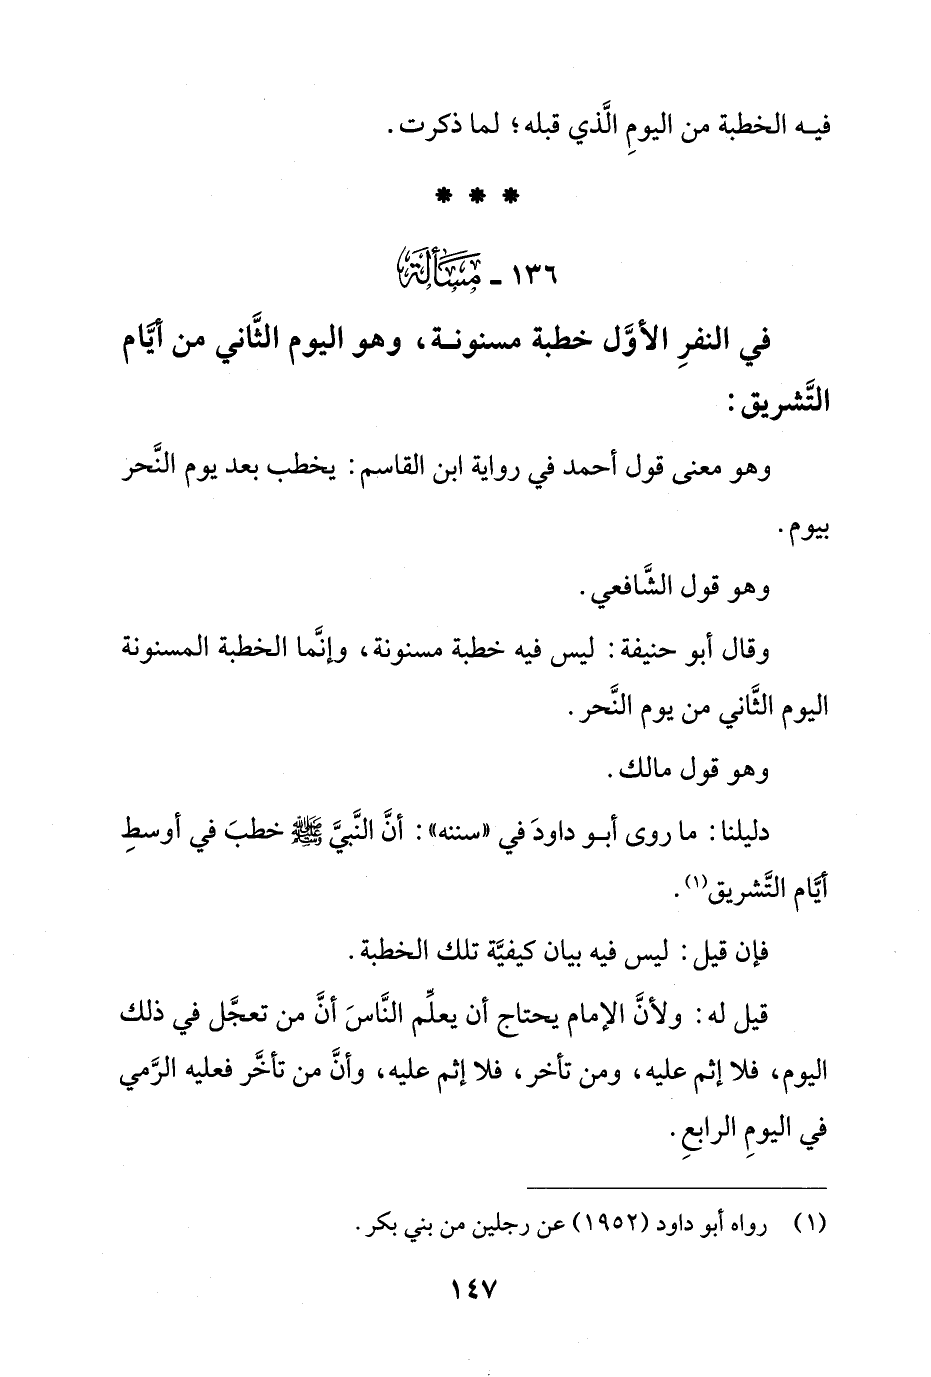 فيه الخطبة من اليومِ الَّذي قبله؛ لما ذكرت.
* * *
١٣٦ - مَسْأَلَة
في النفرِ الأوَّل خطبة مسنونة، وهو اليوم الثَّاني من أيَّام
التَّشريق:
وهو معنى قول أحمد في رواية ابن القاسم: يخطب بعد يوم النَّحر
بيوم.
وهو قول الشَّافعي.
وقال أبو حنيفة: ليس فيه خطبة مسنونة، وإنَّما الخطبة المسنونة
اليوم الثَّاني من يوم النَّحر.
وهو قول مالك.
دليلنا: ما روى أبو داودَ في «سننه»: أنَّ النَّبيَّ ﷺ خطبَ في أوسطِ
أيَّام التَّشريق(١).
فإن قيل: ليس فيه بيان كيفيَّة تلك الخطبة.
قيل له: ولأنَّ الإمام يحتاج أن يعلِّم النَّاسَ أنَّ من تعجَّل في ذلك
اليوم، فلا إثم عليه، ومن تأخر، فلا إثم عليه، وأنَّ من تأخَّر فعليه الرَّمي
في اليومِ الرابعِ.
(١) رواه أبو داود (١٩٥٢) عن رجلين من بني بكر.
١٤٧